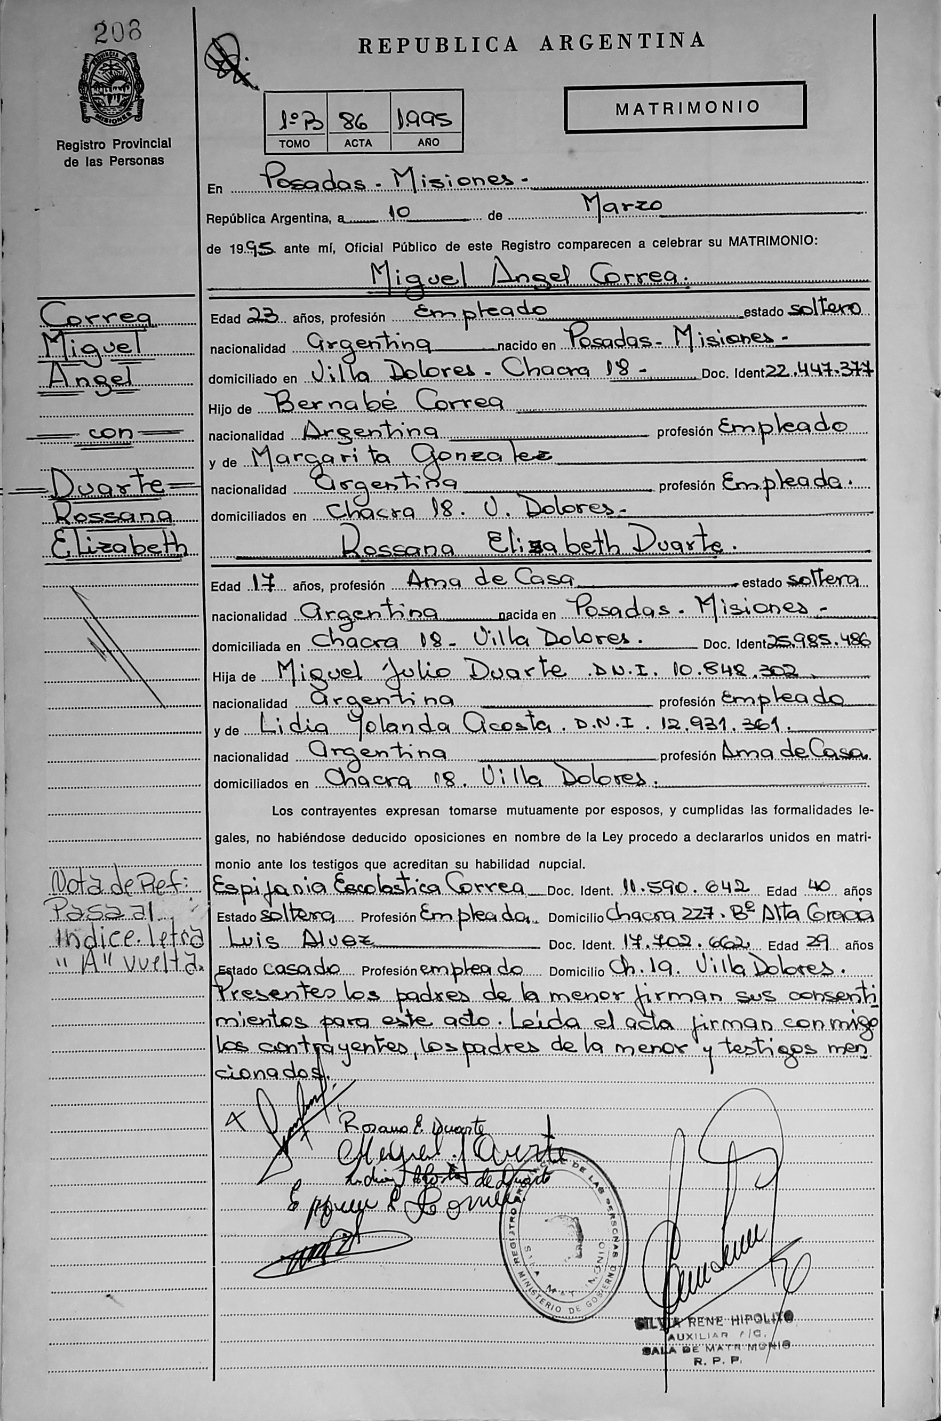 208
REPUBLICA ARGENTINA
MATRIMONIO
Registro Provincial
de las Personas
1ºB 86 1995
TOMO ACTA AÑO
En Posadas - Misiones -
República Argentina, a 10 de Marzo
de 1995 ante mí, Oficial Público de este Registro comparecen a celebrar su MATRIMONIO:
Miguel Angel Correa.
Correa
Miguel
Angel
con
Duarte
Rossana
Elizabeth
Edad 23 años, profesión Empleado estado soltero
nacionalidad Argentina nacido en Posadas - Misiones -
domiciliado en Villa Dolores - Chacra 18 - Doc. Ident 22.447.377
Hijo de Bernabé Correa
nacionalidad Argentina profesión Empleado
y de Margarita Gonzalez
nacionalidad Argentina profesión Empleada.
domiciliados en Chacra 18. V. Dolores -
Rossana Elizabeth Duarte.
Edad 17 años, profesión Ama de Casa estado soltera
nacionalidad Argentina nacida en Posadas - Misiones -
domiciliada en Chacra 18 - Villa Dolores. Doc. Ident 25.985.486
Hija de Miguel Julio Duarte . D.N.I. 10.848.302
nacionalidad Argentina profesión Empleado
y de Lidia Yolanda Acosta. D.N.I. 12.931.361.
nacionalidad Argentina profesión Ama de Casa.
domiciliados en Chacra 18. Villa Dolores.
Los contrayentes expresan tomarse mutuamente por esposos, y cumplidas las formalidades le-
gales, no habiéndose deducido oposiciones en nombre de la Ley procedo a declararlos unidos en matri-
monio ante los testigos que acreditan su habilidad nupcial.
Nota de Ref:
Pasa al
Indice. letra
"A" vuelta.
Espifania Escolastica Correa Doc. Ident. 11.590.642 Edad 40 años
Estado soltera Profesión Empleada. Domicilio Chacra 227. Bº Alta Gracia
Luis Alvez Doc. Ident. 17.702.662 Edad 29 años
Estado casado Profesión empleado Domicilio Ch. 19. Villa Dolores.
Presentes los padres de la menor firman sus consenti
mientos para este acto. Leída el acta firman conmigo
los contrayentes, los padres de la menor y testigos men
cionados.
X
Rosana E. Duarte
Miguel J Duarte
Lidia Acosta de Duarte
REGISTRO PROVINCIAL DE LAS PERSONAS
SALA MATRIMONIO
MINISTERIO DE GOBIERNO
SILVIA RENE HIPOLITO
AUXILIAR
SALA DE MATRIMONIO
R. P. P.